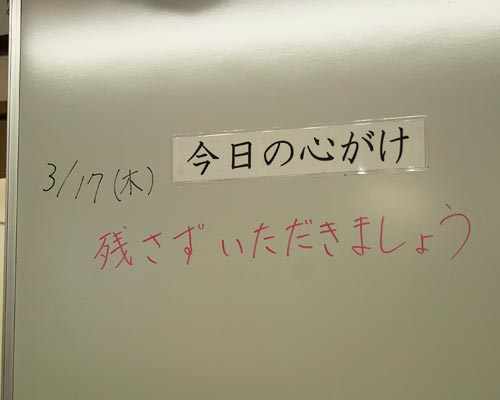 今日の心がけ
3/17(木)
残さずいただきましょう